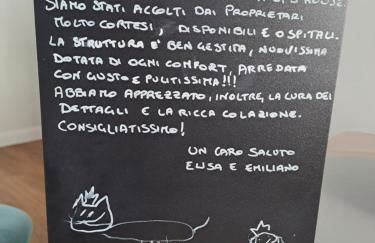 SIAMO STATI ACCOLTI DAI PROPRIETARI
MOLTO CORTESI, DISPONIBILI E OSPITALI.
LA STRUTTURA E' BEN GESTITA, NUOVISSIMA
DOTATA DI OGNI COMFORT, ARREDATA
CON GUSTO E PULITISSIMA!!!
ABBIAMO APPREZZATO, INOLTRE, LA CURA DEI
DETTAGLI E LA RICCA COLAZIONE.
CONSIGLIATISSIMO!
UN CARO SALUTO
ELISA E EMILIANO